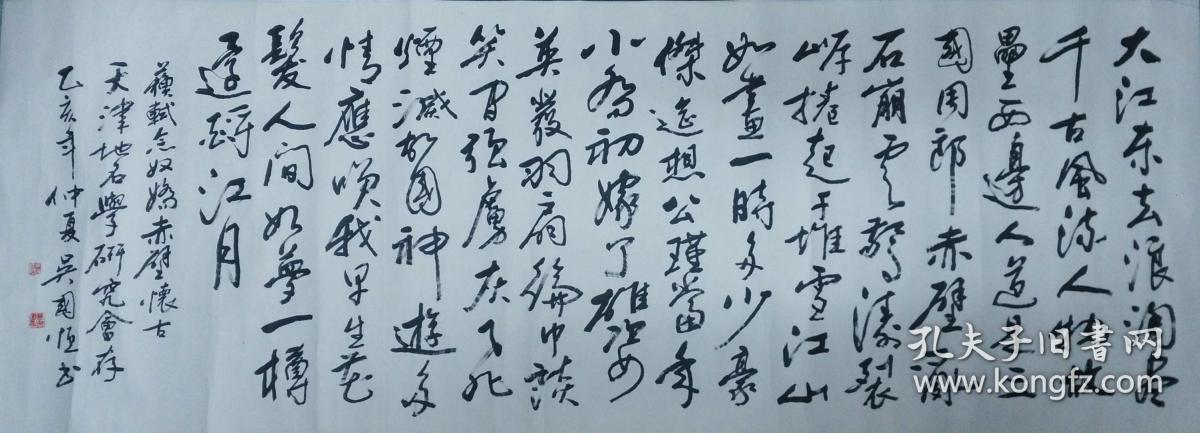 大江东去浪淘尽
千古風流人物故
壘西邊人道是三
國周郎赤壁亂
石崩云驚濤裂
岸捲起千堆雪江山
如畫一時多少豪
傑遥想公瑾當年
小喬初嫁了雄姿
英發羽扇綸巾談
笑间强虜灰飞
煙滅故國神遊多
情應笑我早生華
髮人间如夢一樽
還酹江月
蘇軾念奴嬌赤壁懷古
天津地名學研究會存
乙亥年仲夏 吴國恒书
孔夫子旧書网
www.kongfz.com